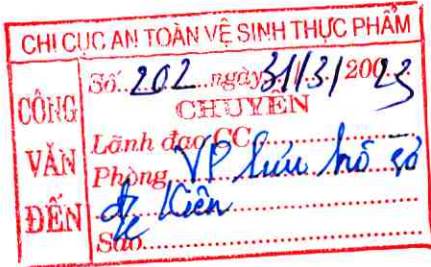 CHI CỤC AN TOÀN VỆ SINH THỰC PHẨM
CÔNG VĂN ĐẾN
Số..202...ngày.31/3/2023
CHUYỂN
Lãnh đạo CC
Phòng VP lưu hồ sơ
đ/c Kiên
Sao